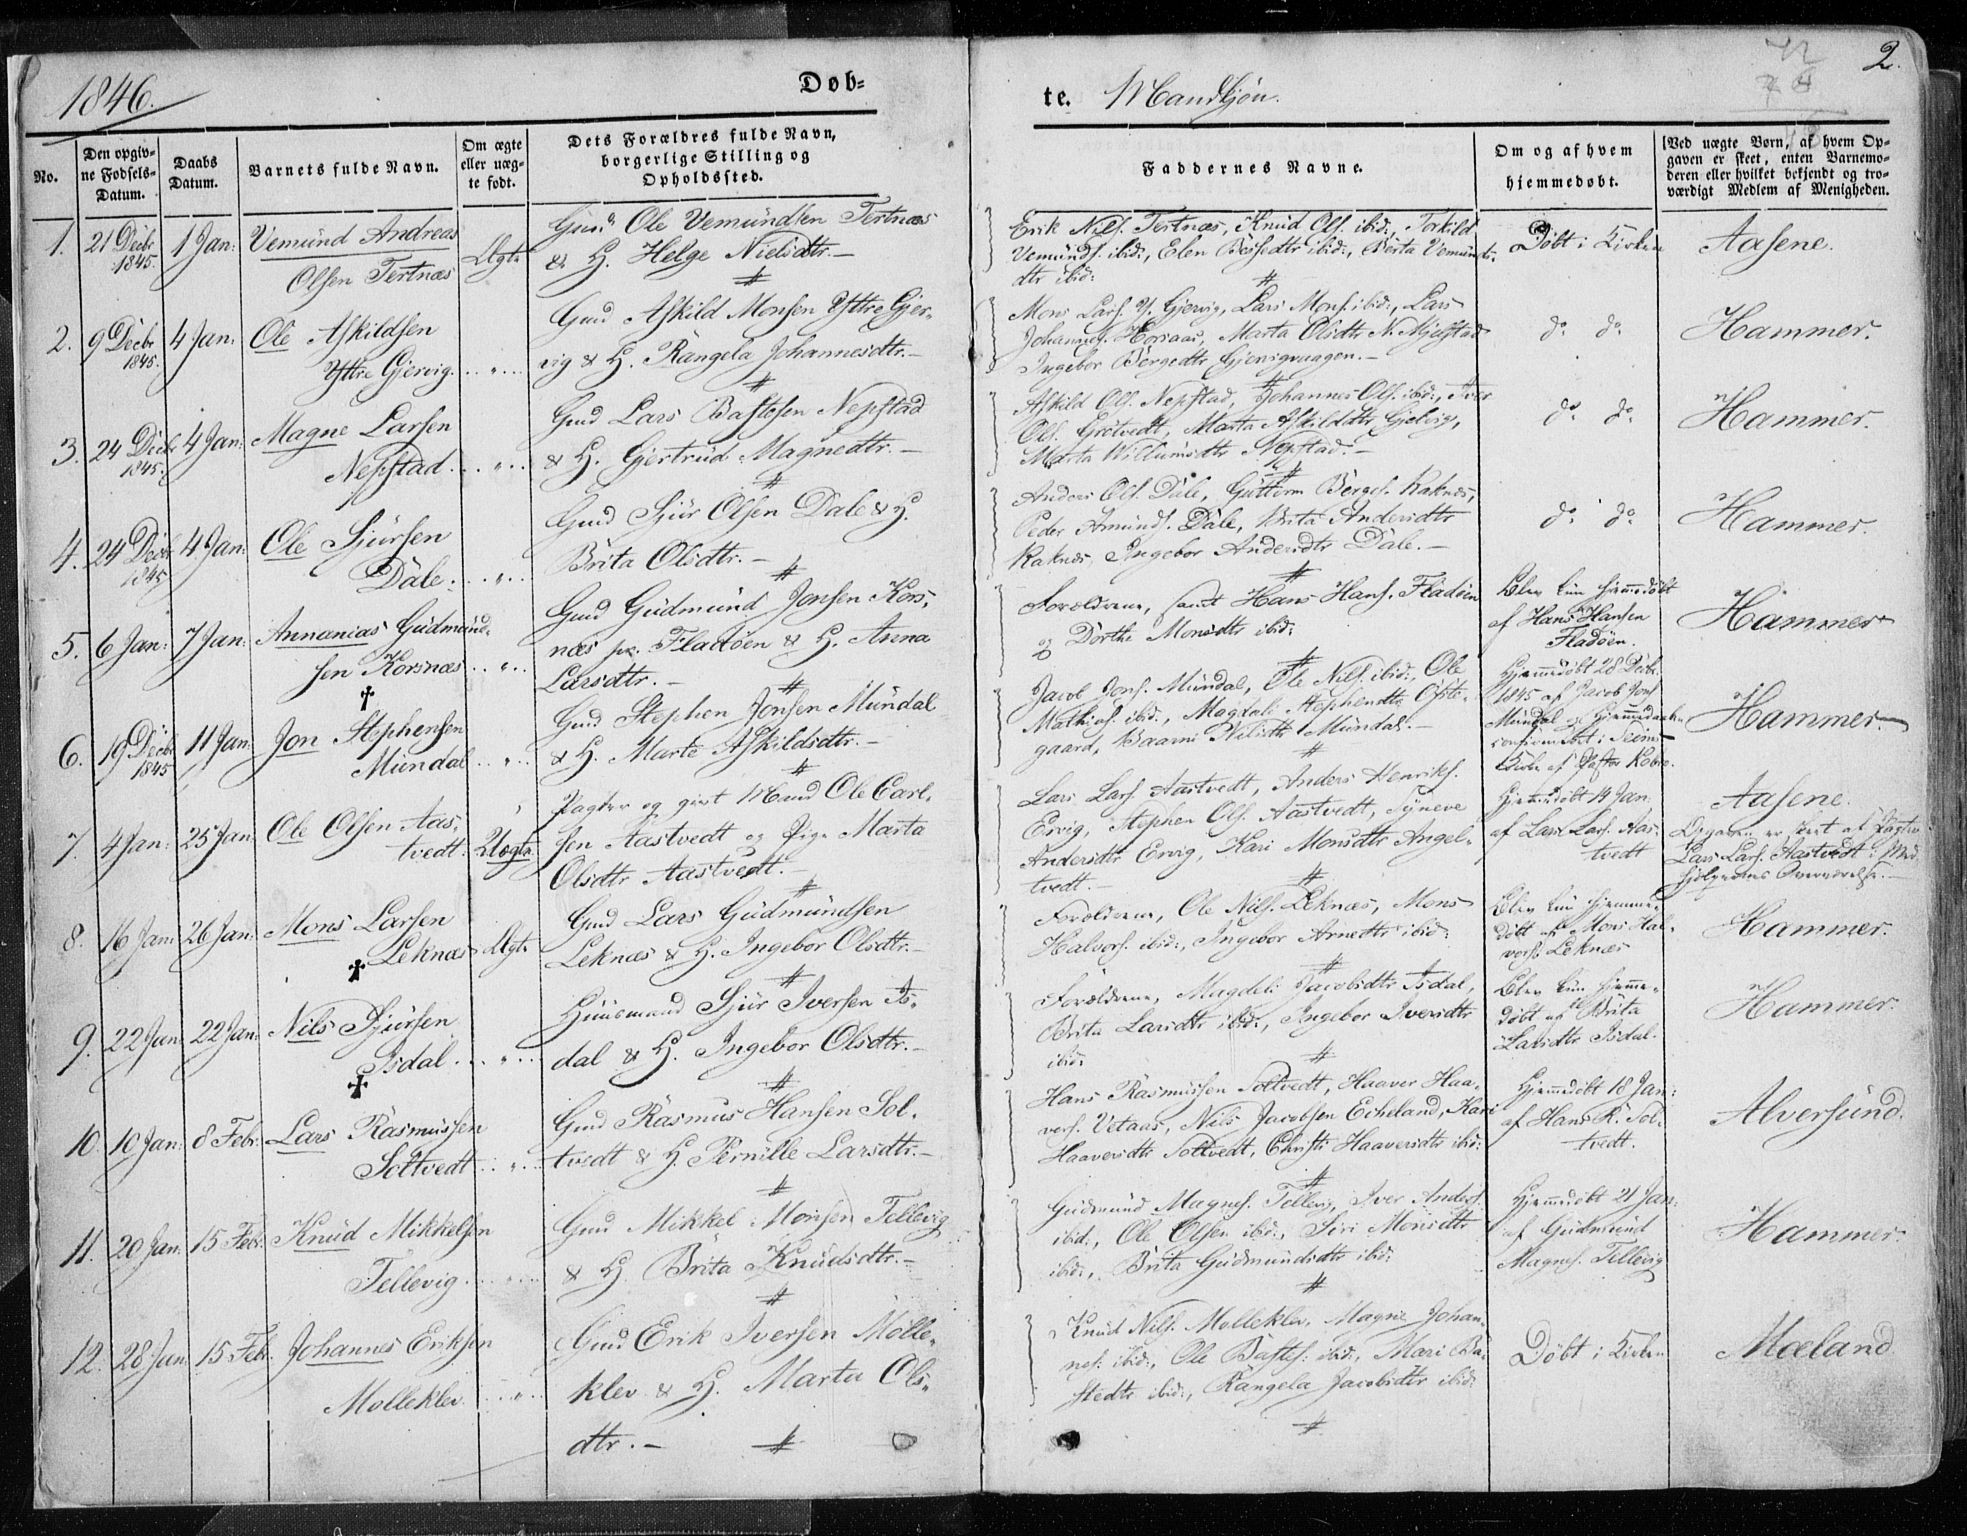 1846.
Døb-
te. Mandkjøn.
2.
No.
Den opgiv-
ne Fødsels-
Datum.
Daabs
Datum.
Barnets fulde Navn.
Om ægte
eller uæg-
te født.
Dets Forældres fulde Navn,
borgerlige Stilling og
Opholdssted.
Faddernes Navne.
Om og af hvem
hjemmedøbt.
Ved uægte Børn, af hvem Op-
gaven er skeet, enten Barnemo-
deren eller hvilket bekjendt og tro-
værdigt Medlem af Menigheden.
1. 21 Decbr 1845. 1 Jan:
Vemund Andreas
Olsen Tertnæs
Ægte
Ole Vemundsen Tertnæs
& H. Helge Nielsdtr.-
Erik Nils. Tertnæs, Knud Ols. ibid:, Torkild
Vemunds. ibid:, Elen Bessedtr ibid:, Berta Vemunds-
dtr ibid:
Døbt i Kirken
Aasene.
2. 9 Decbr 1845. 4 Jan:
Ole Askildsen
Yttre Gjervig.
Gmd Askild Monsen Yttre Gjer-
vig & H. Rangela Johannesdtr.-
Mons Lars. Y. Gjervig, Lars Mons. ibid:, Lars
Johannes. Horsaas, Marta Olsdtr N. Mjelstad
Ingebor Bergedtr Gjervigvaagen.-
do do
Hammer.
3. 24 Decbr 1845. 4 Jan:
Magne Larsen
Nepstad.
Gmd Lars Bastesen Nepstad
& H. Gjertrud Magnedtr.-
Askild Ols. Nepstad, Johannes Ols. ibid:, Iver
Ols. Grøtvedt, Marta Askilddtr Gjelvig,
Marta Willumsdtr Nepstad.-
do do
Hammer.
4. 24 Decbr 1845. 4 Jan:
Ole Sjursen
Dale.
Gmd Sjur Olsen Dale & H.
Brita Olsdtr.-
Anders Ols. Dale, Guttorm Berges. Raknes,
Peder Amunds. Dale, Brita Andersdtr
Raknes, Ingebor Andersdtr Dale.-
do do
Hammer.
5. 6 Jan: 7 Jan:
Annanias Gudmund-
sen Korsnæs
Gmd Gudmund Jonsen Kors-
næs pr. Fladøen & H. Anna
Larsdtr.-
Forældrene, samt Hans Hans. Fladøen
og Dorthe Monsdtr ibid:
Blev kun hjemmedøbt
af Hans Hansen
Fladøen.
Hammer
6. 19 Decbr 1845 11 Jan:
Jon Stephensen
Mundal
Gmd Stephen Jonsen Mundal
& H. Marte Askildsdtr.-
Jacob Jons. Mundal, Ole Nils. ibid:, Ole
Mathias. ibid:, Magdali Stephendtr Ofste-
gaard, Baarni Nilsdtr Mundal.-
Hjemmedøbt 28 Decbr
1845 af Jacob Jons
Mundal og Hjemmedaaben
Hammer
7. 4 Jan: 25 Jan:
Ole Olsen Aas-
tvedt.
Uægte
Pagter og gift Mand Ole Carl-
sen Aastvedt og Pige Marta
Olsdtr Aastvedt.
Lars Lars. Aastvedt, Anders Henriks.
Ervig, Stephen Ols. Aastvedt, Synneve
Andersdtr Ervig, Kari Monsdtr Angel-
tvedt.-
Hjemmedøbt 14 Jan:
af Lars Lars. Aas-
tvedt
Aasene.
Opgaven er skeet af Pagter
Lars Lars. Aastvedt i Med-
hjelpernes Overværelse.-
8. 16 Jan: 26 Jan:
Mons Larsen
Leknæs
Ægte
Gmd Lars Gudmundsen
Leknæs & H. Ingebor Olsdtr.-
Forældrene, Ole Nils. Leknæs, Mons
Halvors. ibid:, Ingebor Arnedtr ibid:
Blev kun hjemme-
døbt af Mons Hal-
vors. Leknæs
Hammer.
9. 22 Jan: 22 Jan:
Nils Sjursen
Isdal.
Huusmand Sjur Iversen Is-
dal & H. Ingebor Olsdtr.-
Forældrene, Magdeli Jacobsdtr Isdal,
Brita Larsdtr ibid:, Ingebor Iversdtr
ibid:
Blev kun hjemme-
døbt af Brita
Larsdtr Isdal.
Hammer.
10. 10 Jan: 8 Febr:
Lars Rasmussen
Soltvedt
Gmd Rasmus Hansen Sol-
tvedt & H. Pernille Larsdtr.-
Hans Rasmussen Soltvedt, Haaver Haa-
vers. Vetaas, Nils Jacobsen Echeland, Kari
Haaversdtr Soltvedt, Christi Haaversdtr ibid:
Hjemmedøbt 18 Jan:
af Hans R. Sol-
tvedt.
Alversund.
11. 20 Jan: 15 Febr:
Knud Mikkelsen
Tellevig.
Gmd Mikkel Monsen Tellevig
& H. Brita Knudsdtr.-
Gudmund Magnes. Tellevig, Iver Anders.
ibid:, Ole Olsen ibid:, Siri Monsdtr
ibid:, Brita Gudmundsdtr ibid:
Hjemmedøbt 21 Jan:
af Gudmund
Magnes. Tellevig
Hammer.
12. 28 Jan 15 Febr.
Johannes Eriksen
Mølleklev
Gmd Erik Iversen Mølle-
klev & H. Marta Ols-
dtr.-
Knud Nils. Mølleklev, Magne Johan-
nes. ibid:, Ole Bastes. ibid:, Mari Ba-
stedtr ibid:, Rangela Jacobsdtr ibid:
Døbt i Kirken
Mæland